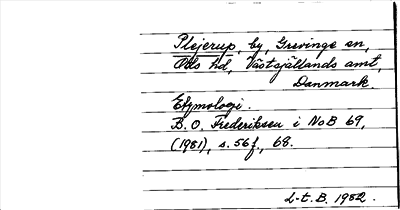 Plejerup, by, Grevinge sn,
Ods hd, Västsjällands amt,
Danmark.
Etymologi.
B. O. Frederiksen i NoB 69,
(1981), s. 56 f., 68.
L-t. B. 1982.